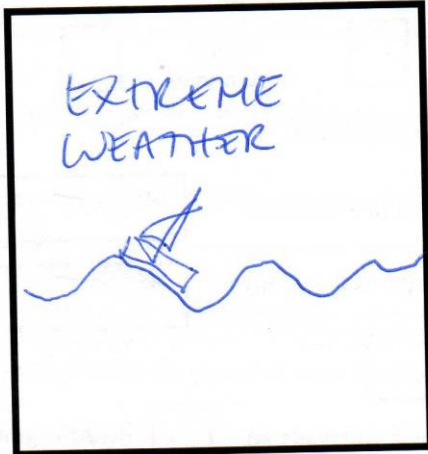 EXTREME
WEATHER